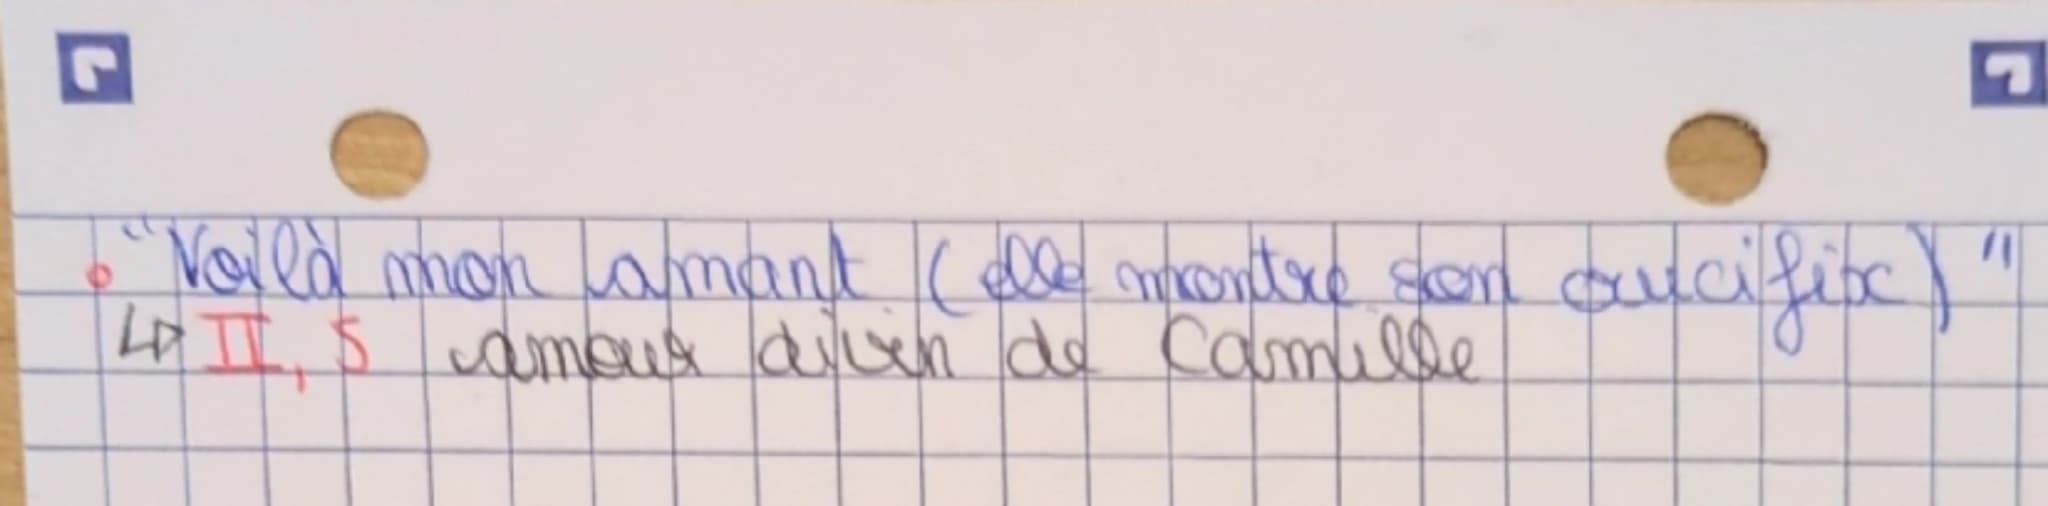 • "Voilà mon amant (elle montre son crucifix)"
↳ II, 5 amour divin de Camille